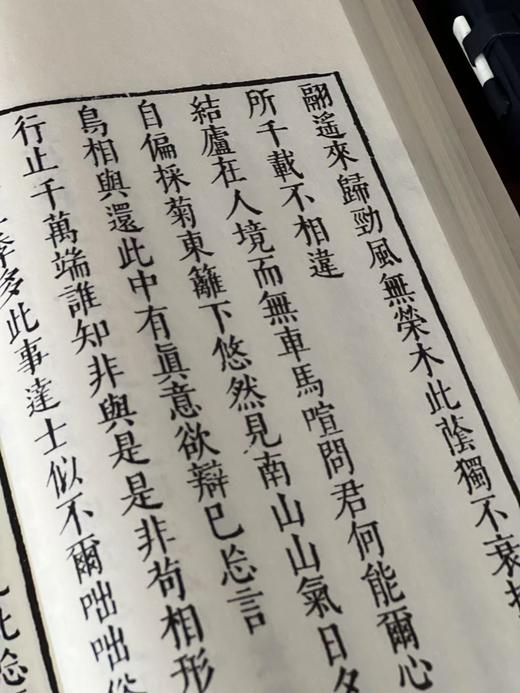 翮遙來歸勁風無榮木此蔭獨不衰
所千載不相違
結廬在人境而無車馬喧問君何能爾心
自偏採菊東籬下悠然見南山山氣日夕
鳥相與還此中有眞意欲辯巳忘言
行止千萬端誰知非與是是非苟相形
季多此事達士似不爾咄咄俗
此忘